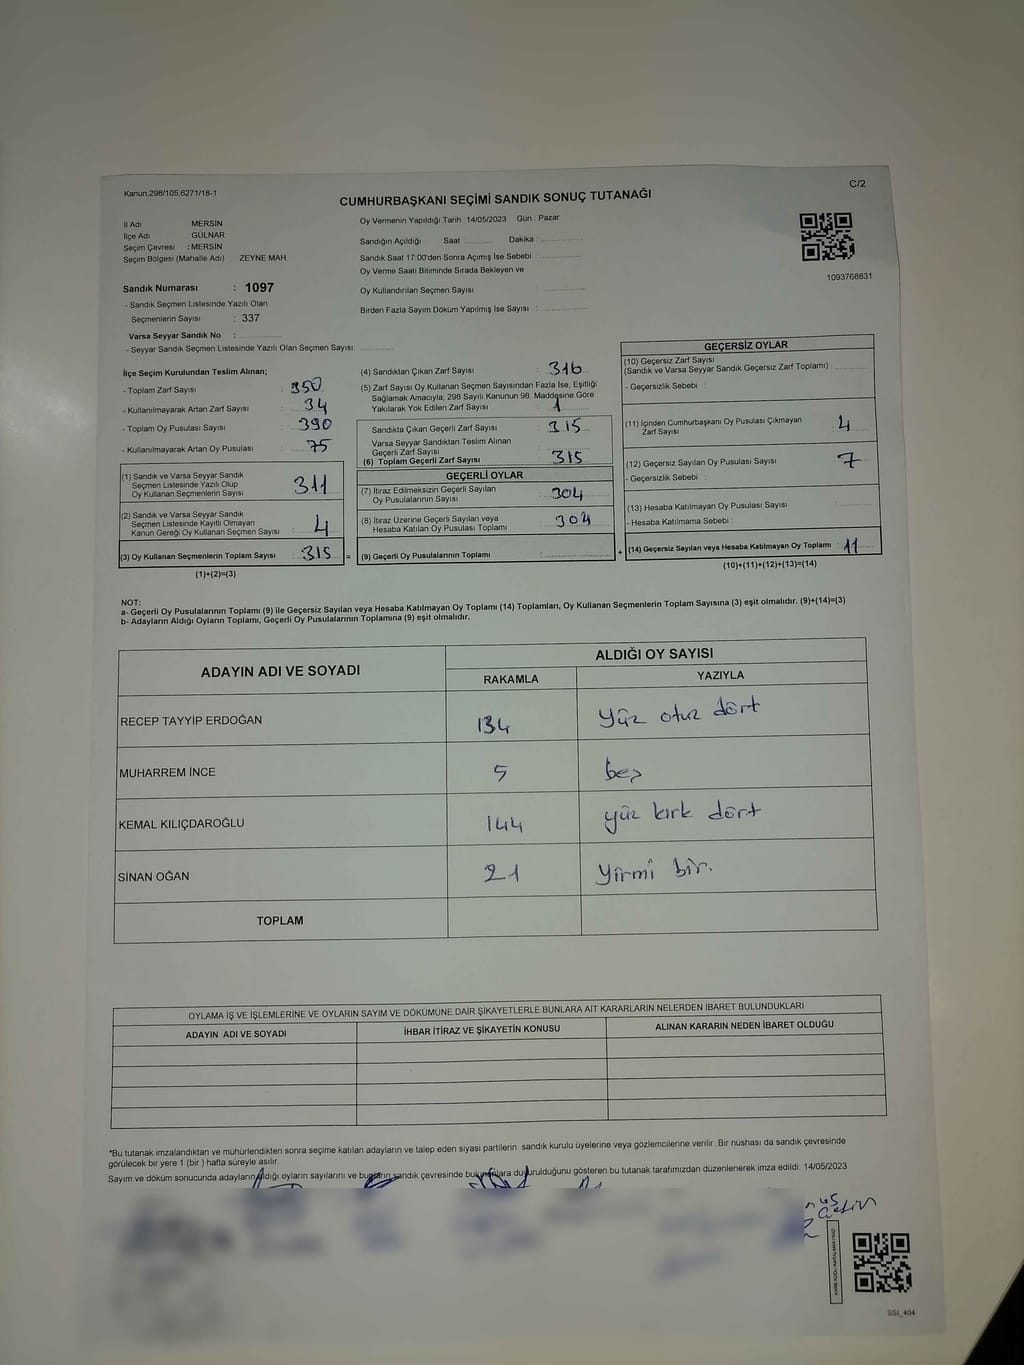 Kanun:298/105;6271/18-1
C/2
CUMHURBAŞKANI SEÇİMİ SANDIK SONUÇ TUTANAĞI
İl Adı MERSİN
İlçe Adı : GÜLNAR
Seçim Çevresi : MERSİN
Seçim Bölgesi (Mahalle Adı) ZEYNE MAH.
Sandık Numarası : 1097
- Sandık Seçmen Listesinde Yazılı Olan
Seçmenlerin Sayısı : 337
Varsa Seyyar Sandık No :
- Seyyar Sandık Seçmen Listesinde Yazılı Olan Seçmen Sayısı:
Oy Vermenin Yapıldığı Tarih : 14/05/2023 Gün : Pazar
Sandığın Açıldığı Saat Dakika :
Sandık Saat 17:00'den Sonra Açılmış İse Sebebi :
Oy Verme Saati Bitiminde Sırada Bekleyen ve
Oy Kullandırılan Seçmen Sayısı :
Birden Fazla Sayım Döküm Yapılmış İse Sayısı :
1093768831
İlçe Seçim Kurulundan Teslim Alınan;
- Toplam Zarf Sayısı : 350
- Kullanılmayarak Artan Zarf Sayısı : 34
- Toplam Oy Pusulası Sayısı : 390
- Kullanılmayarak Artan Oy Pusulası : 75
(1) Sandık ve Varsa Seyyar Sandık
Seçmen Listesinde Yazılı Olup
Oy Kullanan Seçmenlerin Sayısı : 311
(2) Sandık ve Varsa Seyyar Sandık
Seçmen Listesinde Kayıtlı Olmayan
Kanun Gereği Oy Kullanan Seçmen Sayısı : 4
(3) Oy Kullanan Seçmenlerin Toplam Sayısı : 315 =
(1)+(2)=(3)
(4) Sandıktan Çıkan Zarf Sayısı : 316
(5) Zarf Sayısı Oy Kullanan Seçmen Sayısından Fazla İse, Eşitliği
Sağlamak Amacıyla; 298 Sayılı Kanunun 98. Maddesine Göre
Yakılarak Yok Edilen Zarf Sayısı : 1
Sandıkta Çıkan Geçerli Zarf Sayısı : 315
Varsa Seyyar Sandıktan Teslim Alınan
Geçerli Zarf Sayısı
(6) Toplam Geçerli Zarf Sayısı : 315
GEÇERLİ OYLAR
(7) İtiraz Edilmeksizin Geçerli Sayılan
Oy Pusulalarının Sayısı : 304
(8) İtiraz Üzerine Geçerli Sayılan veya
Hesaba Katılan Oy Pusulası Toplamı : 304
(9) Geçerli Oy Pusulalarının Toplamı : +
GEÇERSİZ OYLAR
(10) Geçersiz Zarf Sayısı
(Sandık ve Varsa Seyyar Sandık Geçersiz Zarf Toplamı) :
- Geçersizlik Sebebi :
(11) İçinden Cumhurbaşkanı Oy Pusulası Çıkmayan
Zarf Sayısı : 4
(12) Geçersiz Sayılan Oy Pusulası Sayısı : 7
- Geçersizlik Sebebi :
(13) Hesaba Katılmayan Oy Pusulası Sayısı :
- Hesaba Katılmama Sebebi :
(14) Geçersiz Sayılan veya Hesaba Katılmayan Oy Toplamı : 11
(10)+(11)+(12)+(13)=(14)
NOT:
a- Geçerli Oy Pusulalarının Toplamı (9) ile Geçersiz Sayılan veya Hesaba Katılmayan Oy Toplamı (14) Toplamları, Oy Kullanan Seçmenlerin Toplam Sayısına (3) eşit olmalıdır. (9)+(14)=(3)
b- Adayların Aldığı Oyların Toplamı, Geçerli Oy Pusulalarının Toplamına (9) eşit olmalıdır.
ADAYIN ADI VE SOYADI ALDIĞI OY SAYISI
RAKAMLA YAZIYLA
RECEP TAYYİP ERDOĞAN 134 Yüz otuz dört
MUHARREM İNCE 5 beş
KEMAL KILIÇDAROĞLU 144 yüz kırk dört
SİNAN OĞAN 21 Yirmi bir.
TOPLAM
OYLAMA İŞ VE İŞLEMLERİNE VE OYLARIN SAYIM VE DÖKÜMÜNE DAİR ŞİKAYETLERLE BUNLARA AİT KARARLARIN NELERDEN İBARET BULUNDUKLARI
ADAYIN ADI VE SOYADI İHBAR İTİRAZ VE ŞİKAYETİN KONUSU ALINAN KARARIN NEDEN İBARET OLDUĞU
*Bu tutanak imzalandıktan ve mühürlendikten sonra seçime katılan adayların ve talep eden siyasi partilerin sandık kurulu üyelerine veya gözlemcilerine verilir. Bir nüshası da sandık çevresinde
görülecek bir yere 1 (bir ) hafta süreyle asılır.
Sayım ve döküm sonucunda adayların aldığı oyların sayılarını ve bunların sandık çevresinde bulunanlara duyurulduğunu gösteren bu tutanak tarafımızdan düzenlenerek imza edildi. 14/05/2023
SSI_404